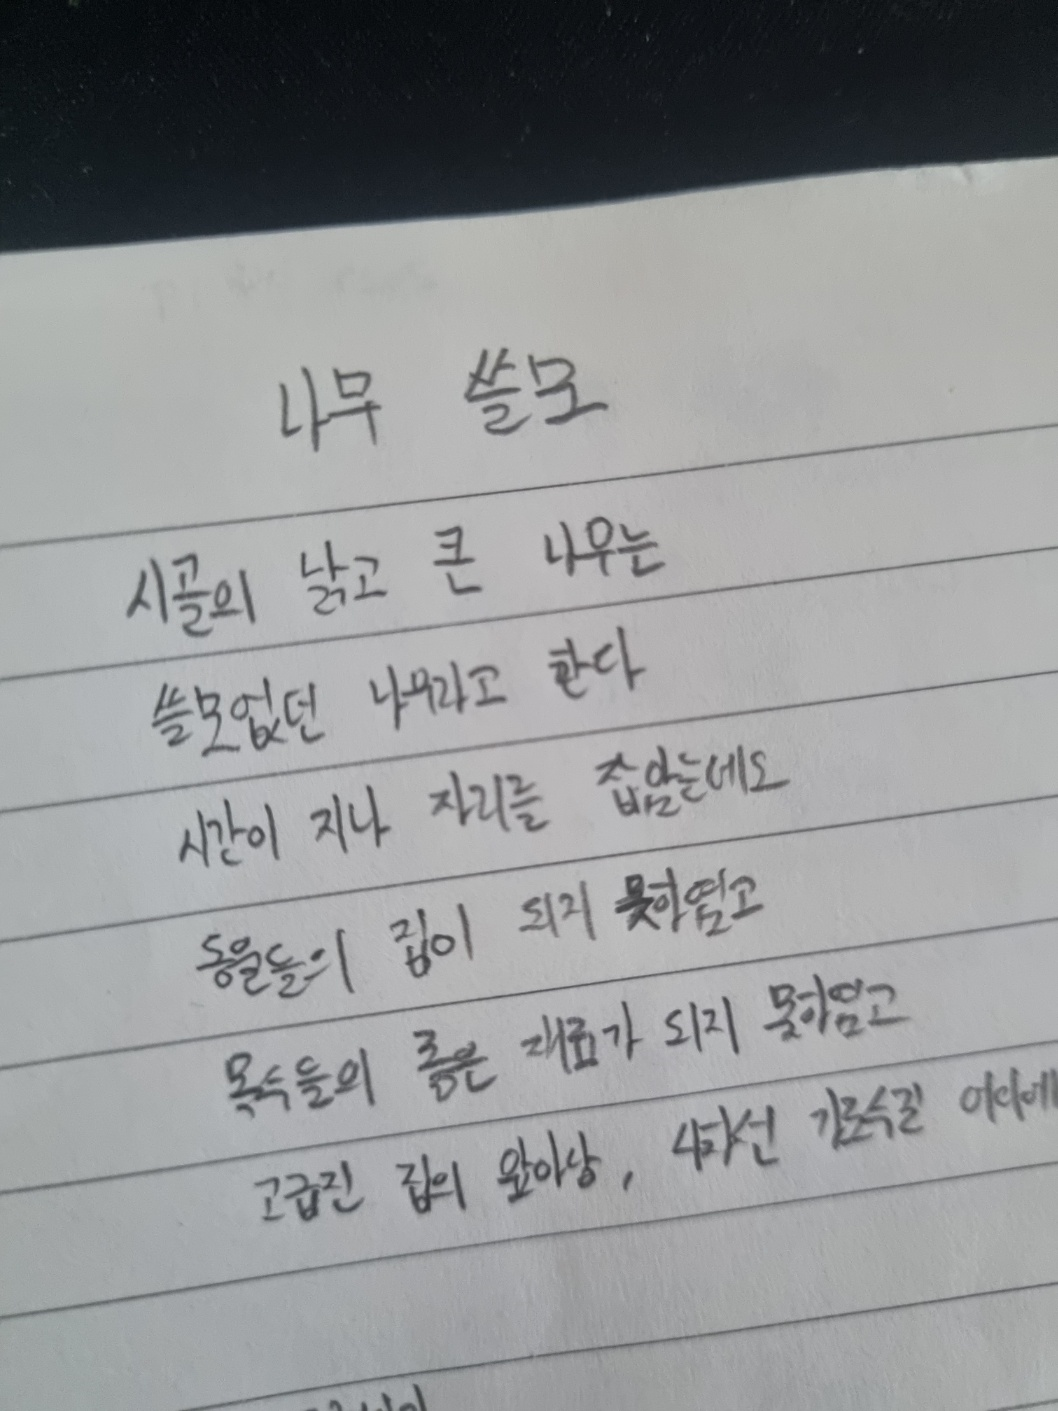 나무 쓸모
시골의 낡고 큰 나무는
쓸모없던 나무라고 한다
시간이 지나 자리를 잡았는데도
동물들의 집이 되지 못하였고
목수들의 좋은 재료가 되지 못하였고
고급진 집의 앞마당, 4차선 가로수길 어디에